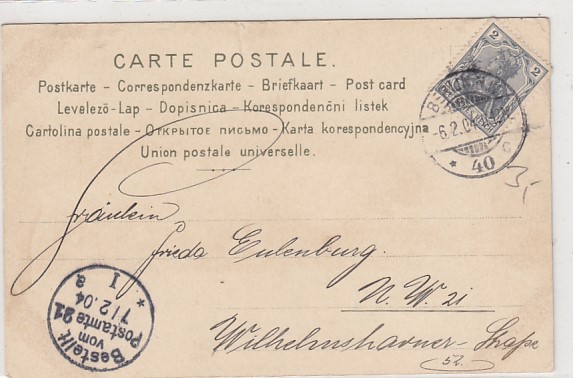 CARTE POSTALE.
Postkarte – Correspondenzkarte – Briefkaart – Post card
Levelező-Lap – Dopisnica – Korespondenční listek
Cartolina postale – Открытое письмо – Karta korespondencyjna
Union postale universelle.
2 2
-6.2.04
* 40 c
3,-
Fräulein
Frieda Eulenburg.
N. W. 21
Wilhelmshavner-Straße
52.
Bestellt
vom
Postamte 21
7/2.04
I